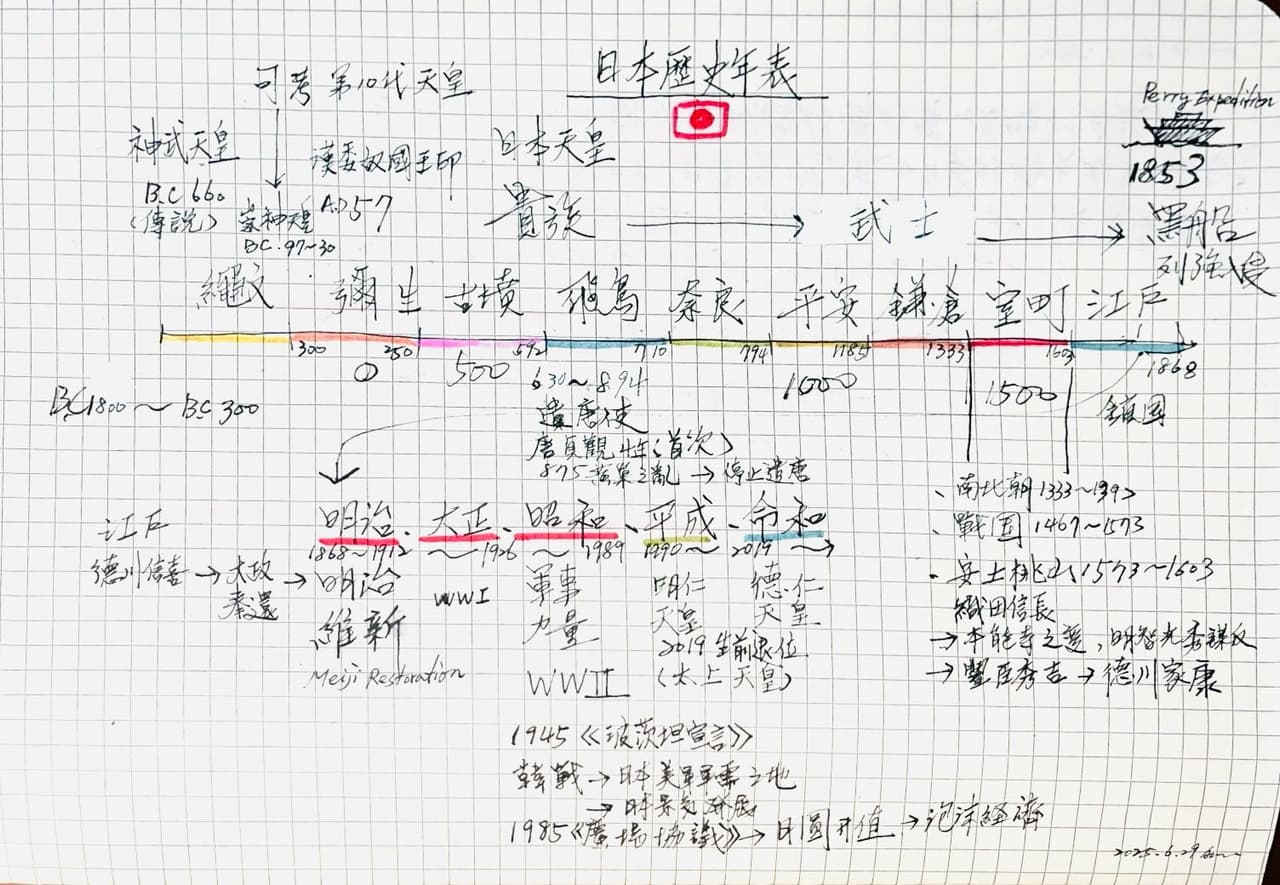 日本歷史年表
可考第10代天皇
神武天皇
B.C 660
(傳說)
崇神天皇
BC.97~30
漢委奴國王印
A.D 57
日本天皇
貴族 → 武士 → 黑船
列強入侵
Perry Expedition
1853
繩文 彌生 古墳 飛鳥 奈良 平安 鎌倉 室町 江戶
300 250 592 710 794 1185 1333 1603 1868
0 500 1000 1500
BC1800~BC300
630~894
遣唐使
唐貞觀4年(首次)
875黃巢之亂→停止遣唐
鎖国
、南北朝1333~1392
、戰国1467~1573
、安土桃山1573~1603
織田信長
→本能寺之變,明智光秀謀反
→豐臣秀吉→德川家康
明治、大正、昭和、平成、令和
1868~1912 ~1926 ~1989 1990~ 2019~
江戶
德川信喜→大政奉還→明治維新
Meiji Restoration
WWI
軍事力量
WWII
明仁天皇
2019生前退位
(太上天皇)
德仁天皇
1945《波茨坦宣言》
韓戰→日本美軍軍需之地
→日本景氣發展
1985《廣場協議》→日圓升值→泡沫經濟
2025.6.29